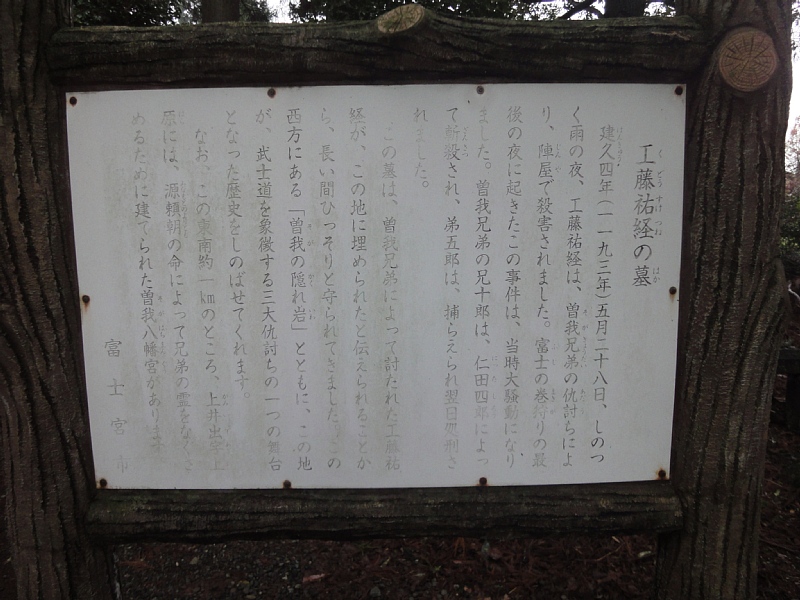 工藤祐経の墓
建久四年(一一九三年)五月二十八日、しのつ
く雨の夜、工藤祐経は、曽我兄弟の仇討ちによ
り、陣屋で殺害されました。富士の巻狩りの最
後の夜に起きたこの事件は、当時大騒動になり
ました。曽我兄弟の兄十郎は、仁田四郎によっ
て斬殺され、弟五郎は、捕らえられ翌日処刑さ
れました。
この墓は、曽我兄弟によって討たれた工藤祐
経が、この地に埋められたと伝えられることか
ら、長い間ひっそりと守られてきました。この
西方にある「曽我の隠れ岩」とともに、この地
が、武士道を象徴する三大仇討ちの一つの舞台
となった歴史をしのばせてくれます。
なお、この東南約一kmのところ、上井出字上
原には、源頼朝の命によって兄弟の霊をなぐさ
めるために建てられた曽我八幡宮があります。
富士宮市